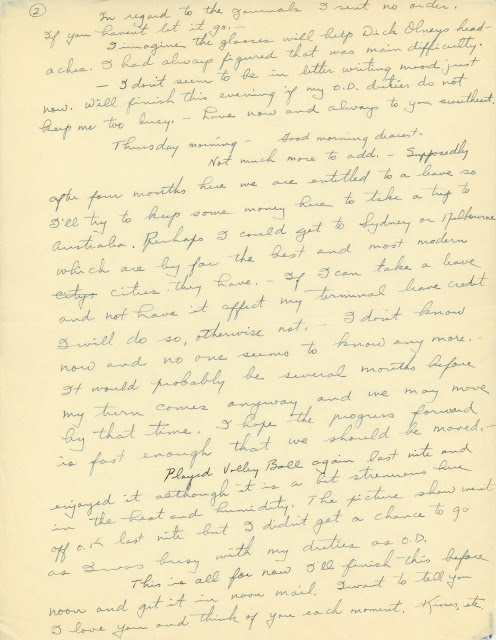 2
In regard to the journals I sent no order.
If you haven't let it go. –
I imagine the glasses will help Dick Olneys head-
aches. I had always figured that was main difficulty.
– I don't seem to be in letter writing mood just
now. Will finish this evening if my O.D. duties do not
keep me too busy. – Love now and always to you sweetheart.
Thursday morning – Good morning dearest –
Not much more to add. – Supposedly
after four months here we are entitled to a leave so
I'll try to keep some money here to take a trip to
Australia. Perhaps I could get to Sydney or Melbourne
which are by far the best and most modern
citys cities they have. – If I can take a leave
and not have it affect my terminal leave credit
I will do so, otherwise not. – I don't know
now and no one seems to know any more. –
It would probably be several months before
my turn comes anyway and we may move
by that time. I hope the progress forward
is fast enough that we should be moved. –
Played Volley Ball again last nite and
enjoyed it although it is a bit strenuous here
in the heat and humidity. The picture show went
off O.K. last nite but I didn't get a chance to go
as I was busy with my duties as O.D.
This is all for now I'll finish this before
noon and get it in noon mail. I want to tell you
I love you and think of you each moment. Kisses, etc.